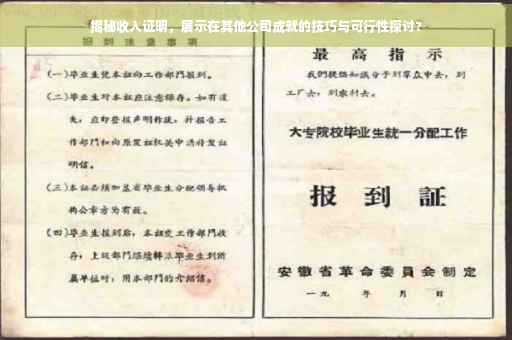 揭秘收入证明，展示在其他公司成就的技巧与可行性探讨？
报到注意事项
(一)毕业生凭本证向工作部门报到。
(二)毕业生对本证应注意保存。如有遗
失，应即登报声明作废，并报告工
作部门和向原发证机关申请补发证
明信。
(三)本证必须加盖省毕业生分配领导机
构公章方为有效。
(四)毕业生报到后，本证交工作部门收
存；上级部门继续转派毕业生到所
属单位时，用本部门的介绍信。
最高指示
我们提倡知识分子到群众中去，到
工厂去，到农村去。
大专院校毕业生统一分配工作
报到証
安徽省革命委員会制定
一九 年 月 日